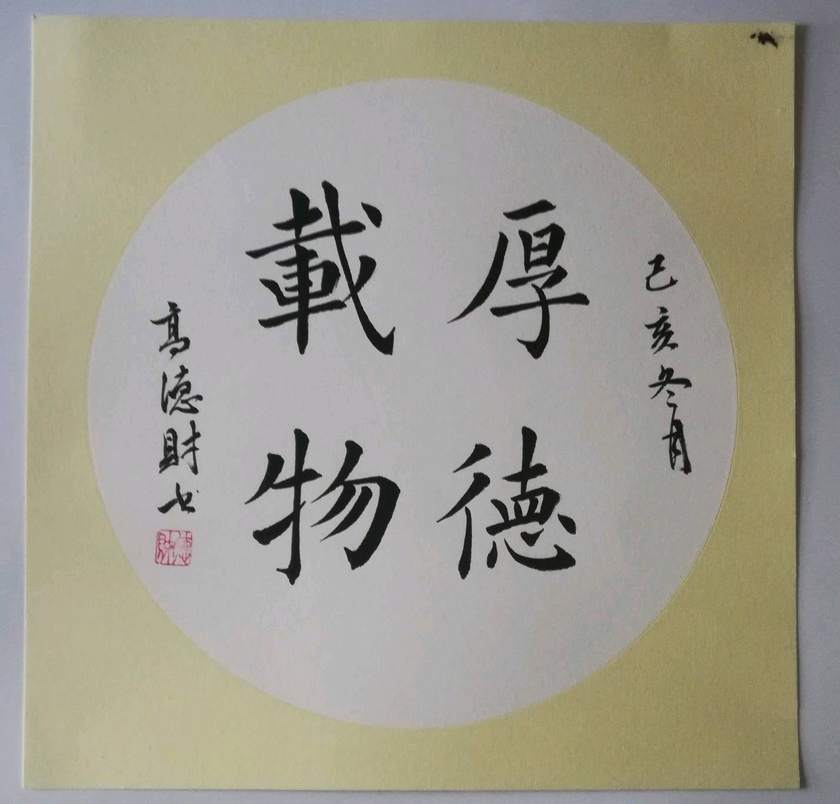 己亥冬月
厚德
載物
高德財书